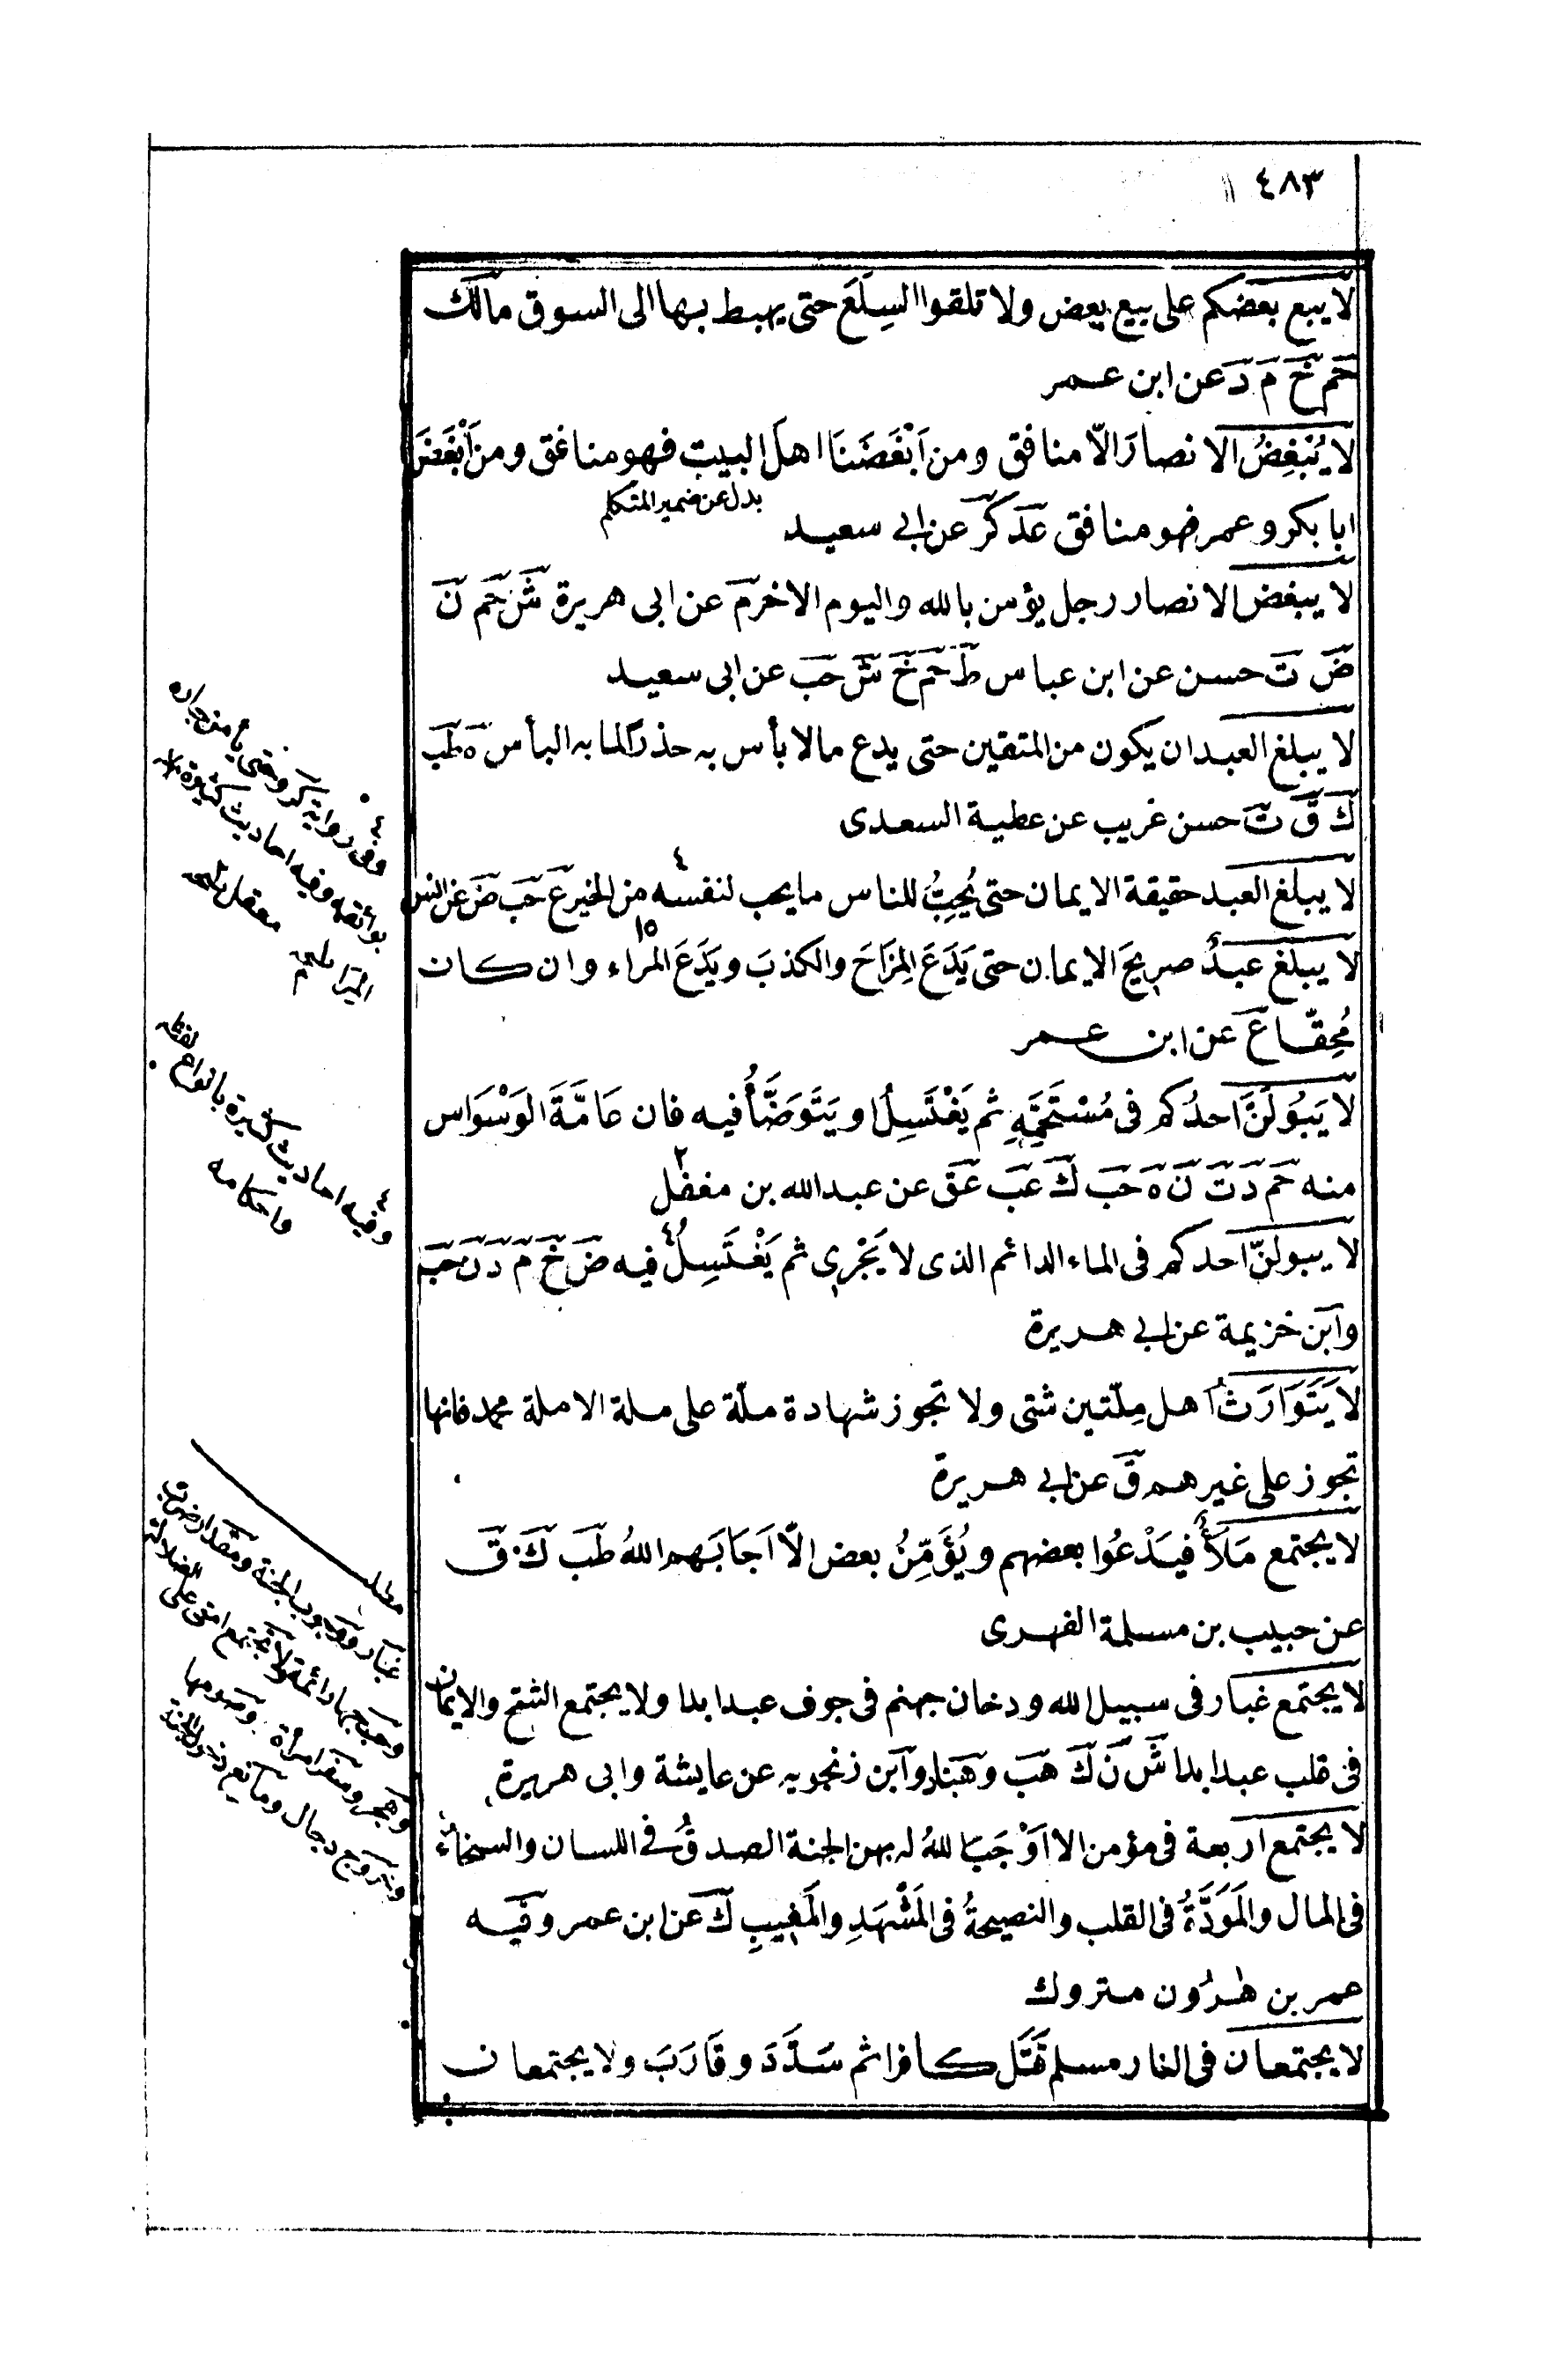 ٤٨٣
لا يبع بعضكم على بيع بعض ولا تلقوا السِلَعَ حتى يهبط بها الى السوق مالك
حم خ م د عن ابن عمر
لا يُبْغِضُ الانصارَ الّا منافق ومن اَبْغَضَنَا اهلَ البيتِ فهو منافق ومن اَبْغَضَ
بدل عن ضمير المتكلم
ابا بكر وعمر فهو منافق عد كر عن ابي سعيد
لا يبغض الانصار رجل يؤمن بالله واليوم الاخر م عن ابى هريرة ش حم ن
ض ت حسن عن ابن عباس ط حم خ ش حب عن ابى سعيد
لا يبلغ العبد ان يكون من المتقين حتى يدع مالا بأس به حذرا لما به البأس ه طب
ك ق ت حسن غريب عن عطية السعدى
لا يبلغ العبد حقيقة الايمان حتى يُحِبَّ للناس ما يحب لنفسه ٤ من الخير ع حب ض عن انس
لا يبلغ عبدٌ صريحَ الايمان حتى يَدَعَ المِزَاحَ والكذبَ ويَدَعَ المراء وان كان
مُحِقّا ع عن ابن عمر
لا يَبُولَنَّ احدُكم فى مُسْتَحَمِّهِ ثم يَغْتَسِلُ او يَتَوَضَّأُ فيه فان عَامَّةَ الوَسْوَاس
منه حم د ت ن ه حب ك عب عق عن عبد الله بن مغفل ٢
لا يبولنّ احدكم فى الماء الدائم الذى لا يَجْرِى ثم يَغْتَسِلُ ٤ فيه ض خ م د ن حب
وابن خزيمة عن ابي هريرة
لا يَتَوَارَثُ اهل مِلّتين شتى ولا تجوز شهادة ملّة على ملة الا ملة محمد فانها
تجوز على غيرهم ق عن ابي هريرة
لا يجتمع مَلَأٌ فيَدْعُوا بعضهم ويُؤَمِّنُ بعض الّا اَجَابَهم اللهُ طب ك ق
عن حبيب بن مسلمة الفهرى
لا يجتمع غبار فى سبيل الله ودخان جهنم فى جوف عبد ابدا ولا يجتمع الشح والايمان
فى قلب عبد ابدا ش ن ك هب وهناد وابن زنجويه عن عايشة وابى هريرة
لا يجتمع اربعة فى مؤمن الا اَوْجَبَ اللهُ له بهن الجنة الصدقُ في اللسان والسخاءُ
فى المال والمَوَدَّةُ فى القلب والنصيحةُ فى المَشْهَدِ والمَغِيبِ ك عن ابن عمر وفيه
عمر بن هرُون متروك
لا يجتمعان فى النار مسلم قَتَلَ كافرا ثم سَدَّدَ وقَارَبَ ولا يجتمعان
٤ وفى رواية كر وحتى يأمن جاره
بوائقه وفيه احاديث كثيرة
٤ وفيه احاديث كثيرة بانواع لفظه
واحكامه
مطلب